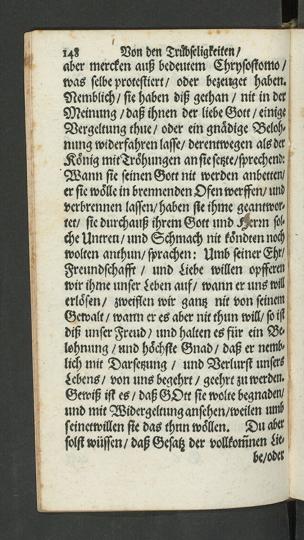 148 Von den Trübseligkeiten/
aber mercken auß bedeutem Chrysostomo/
was selbe protestiert/ oder bezeuget haben.
Nemblich/ sie haben diß gethan/ nit in der
Meinung/ daß ihnen der liebe Gott/ einige
Vergeltung thue/ oder ein gnädige Beloh-
nung widerfahren lasse/ derentwegen als der
König mit Tröhungen an sie setzte/ sprechend:
Wann sie seinen Gott nit werden anbetten/
er sie wölle in brennenden Ofen werffen/ und
verbrennen lassen/ haben sie ihme geantwor-
tet/ sie durchauß ihrem Gott und Herrn sol-
che Untreu/ und Schmach nit köndten noch
wolten anthun/ sprachen: Umb seiner Ehr/
Freundschafft / und Liebe willen opfferen
wir ihme unser Leben auf/ wann er uns will
erlösen/ zweiflen wir gantz nit von seinem
Gewalt/ wann er es aber nit thun will/ so ist
diß unser Freud/ und halten es für ein Be-
lohnung/ und höchste Gnad/ daß er nemb-
lich mit Darsetzung / und Verlurst unsers
Lebens/ von uns begehrt/ geehrt zu werden.
Gewiß ist es/ daß GOtt sie wolte begnaden/
und mit Widergeltung ansehen/ weilen umb
seinetwillen sie das thun wöllen. Du aber
solst wüssen/ daß Gesatz der vollkom̃nen Lie-
be/ oder